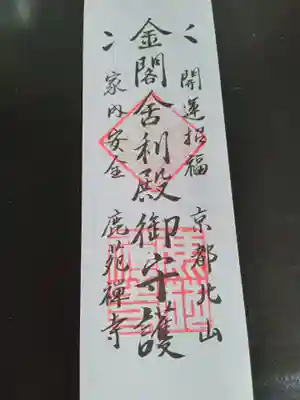 開運招福 京都北山
金閣舎利殿御守護
家内安全 鹿苑禅寺